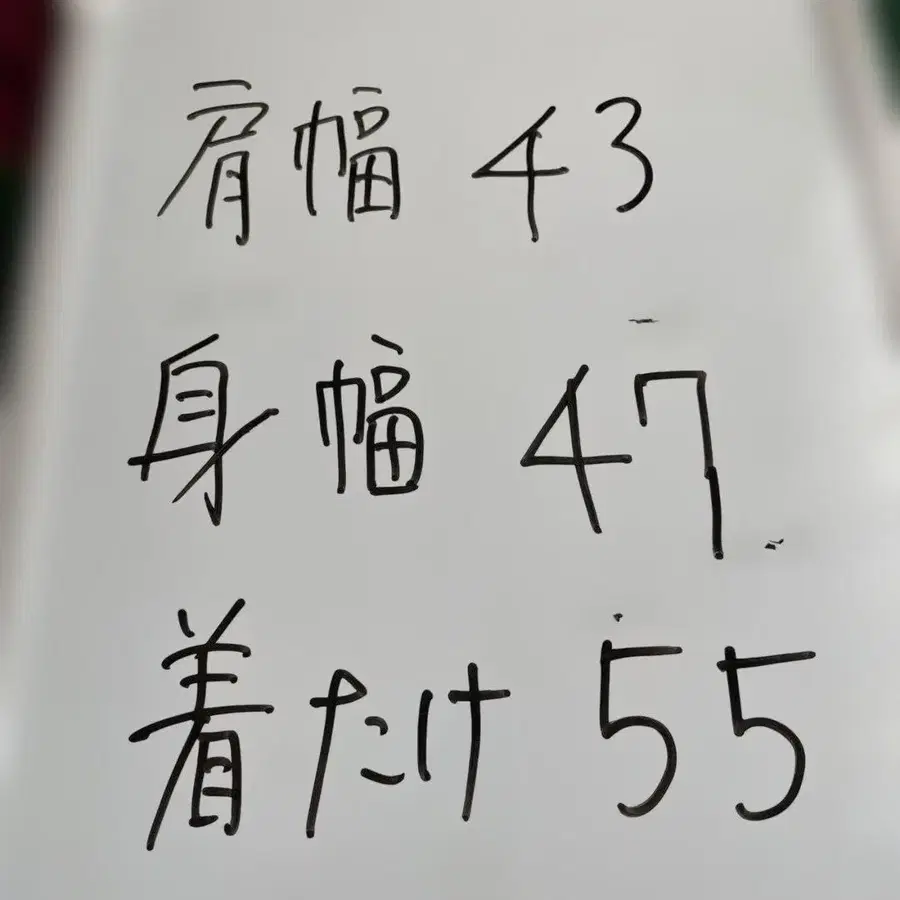 肩幅 43
身幅 47
着たけ 55